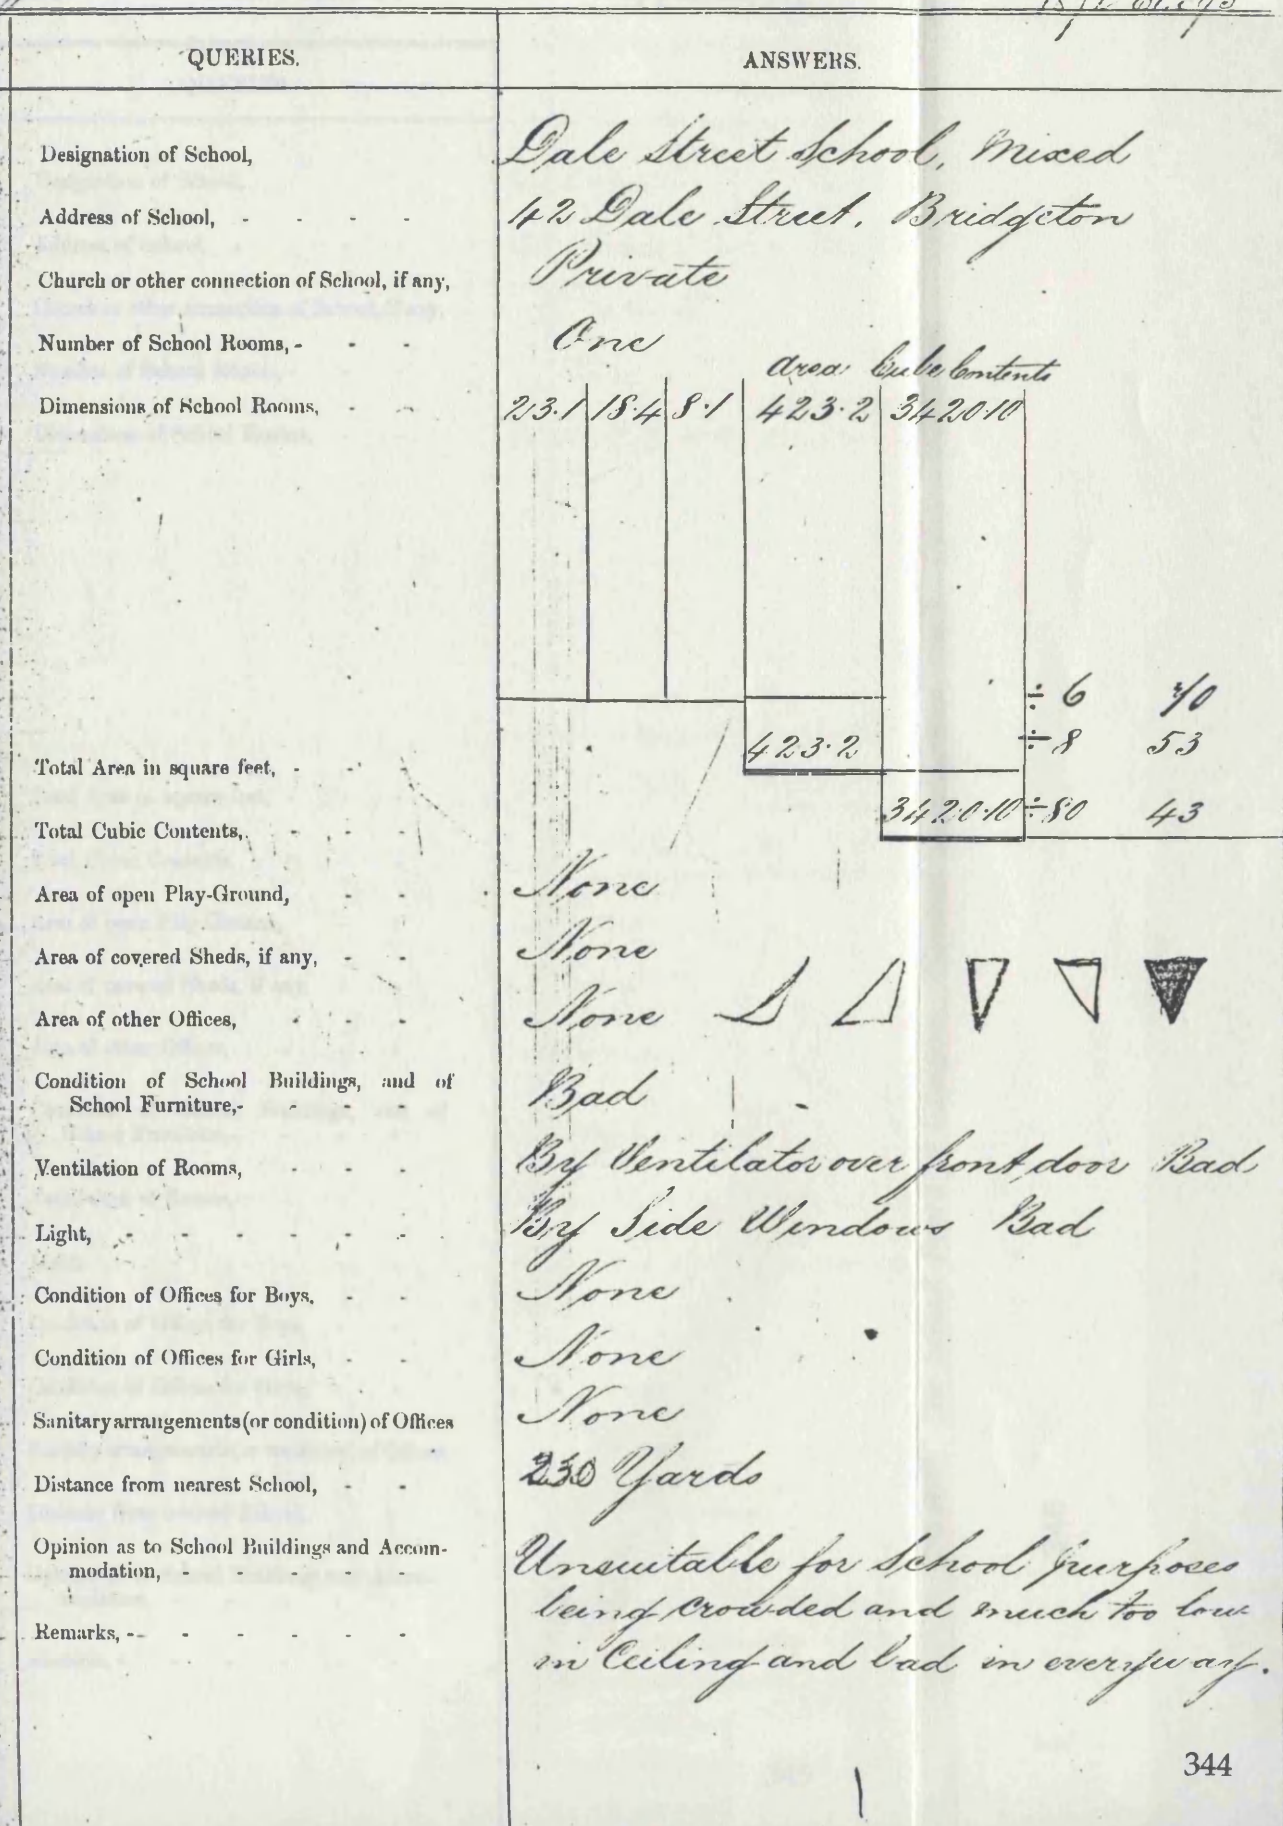 QUERIES.
ANSWERS.
Designation of School,
Dale Street School, Mixed
Address of School, - - - -
42 Dale Street, Bridgeton
Church or other connection of School, if any,
Private
Number of School Rooms, - - -
One
Area Cube Contents
Dimensions of School Rooms, - -
23·1 18·4 8·1 423·2 3420·10
÷ 6 70
÷ 8 53
Total Area in square feet, - - -
423·2
Total Cubic Contents, - - -
3420·10 ÷ 80 43
Area of open Play-Ground, - -
None
Area of covered Sheds, if any, - -
None
Area of other Offices, - - - -
None
Condition of School Buildings, and of
School Furniture,- - - -
Bad
Ventilation of Rooms, - - -
By Ventilator over front door Bad
Light, - - - - - -
By Side Windows Bad
Condition of Offices for Boys, - -
None
Condition of Offices for Girls, - -
None
Sanitary arrangements (or condition) of Offices
None
Distance from nearest School, - -
230 Yards
Opinion as to School Buildings and Accom-
modation, - - - - -
Unsuitable for School purposes
being crowded and much too low
Remarks, - - - - - -
in Ceiling and bad in every way.
344